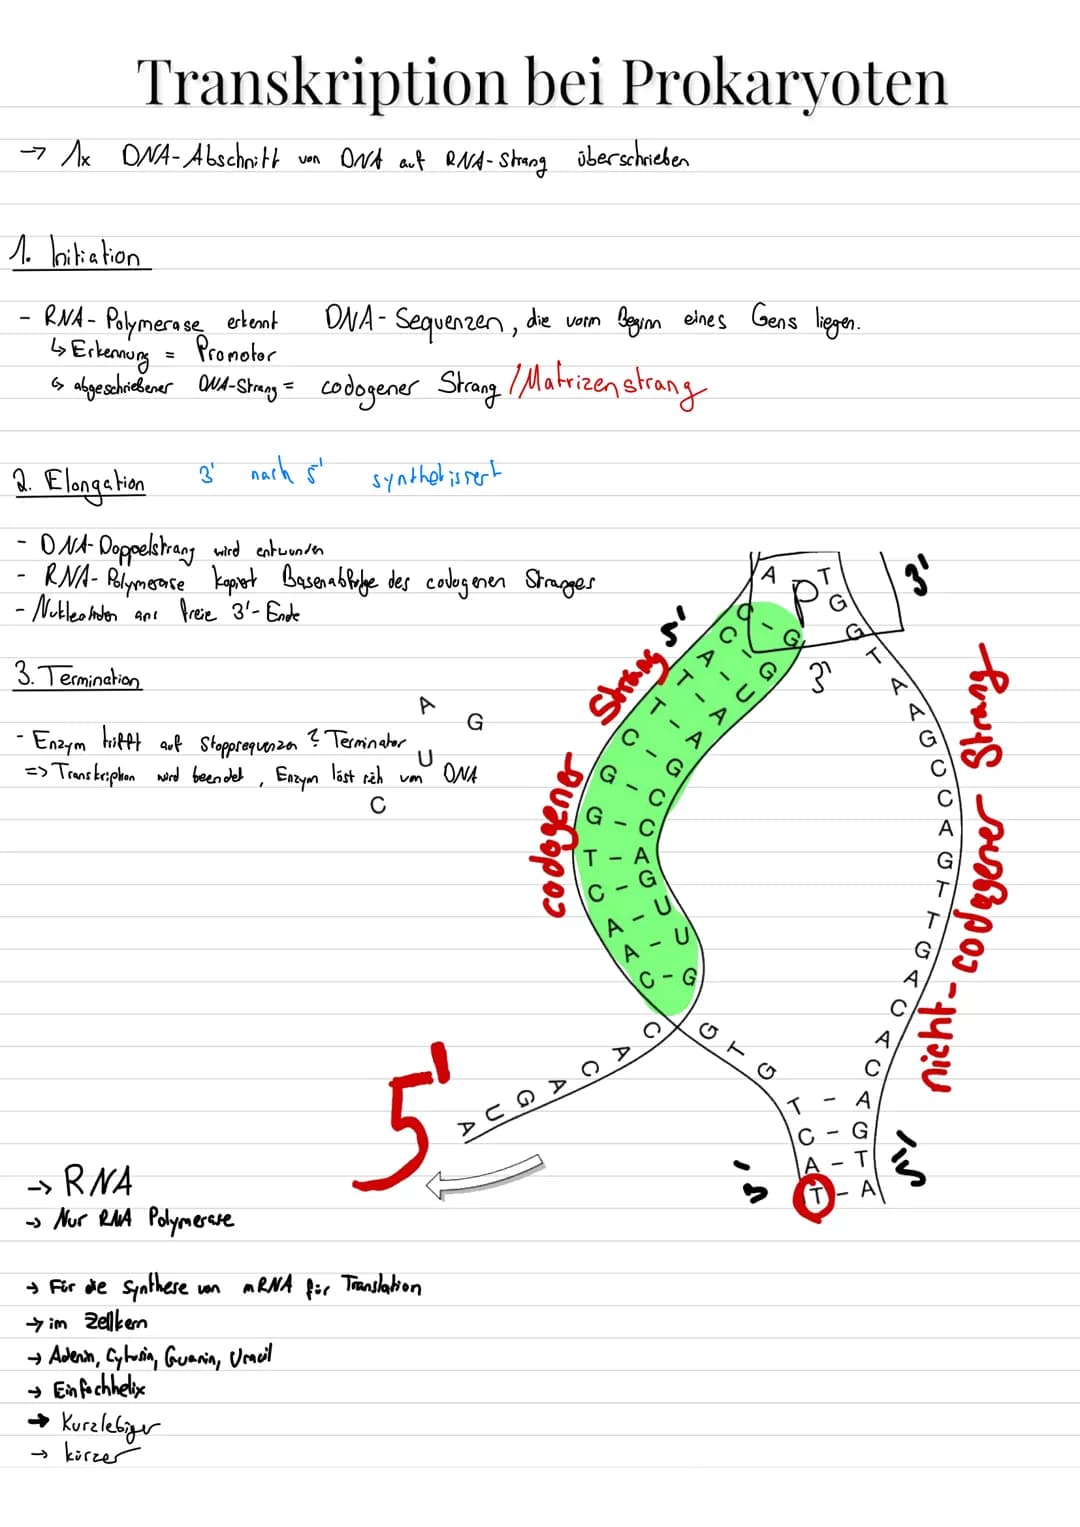 Transkription bei Prokaryoten
→ 1x DNA-Abschnitt von DNA auf RNA-Strang überschrieben
1. Initiation
- RNA-Polymerase erkennt DNA-Sequenzen, die vorm Beginn eines Gens liegen.
↳ Erkennung = Promotor
↳ abgeschriebener DNA-Strang = codogener Strang /Matrizenstrang
2. Elongation 3' nach 5' synthetisiert
- DNA-Doppelstrang wird entwunden
- RNA-Polymerase kopiert Basenabfolge des codogenen Stranges
- Nukleotiden ans freie 3'-Ende
3. Termination
- Enzym trifft auf Stoppsequenzen ? Terminator
=> Transkription wird beendet, Enzym löst sich von DNA
A
G
U
C
codogener Strang 5'
A P T
G
G
T
A
A
G
C
C
A
G
T
T
G
A
C
A
C
3'
nicht-codogener Strang
C - G
C - G
A - U
T - A
T - A
C - G
G - C
G - C
T - A
C - G
A - U
A - U
C - G
3'
C
A
C
A
G
U
A
5'
G
T
G
T - A
C - G
A - T
T - A
3'
5'
→ RNA
→ Nur RNA Polymerase
→ Für die Synthese von mRNA für Translation
→ im Zellkern
→ Adenin, Cytosin, Guanin, Uracil
→ Einfachhelix
→ Kurzlebiger
→ kürzer